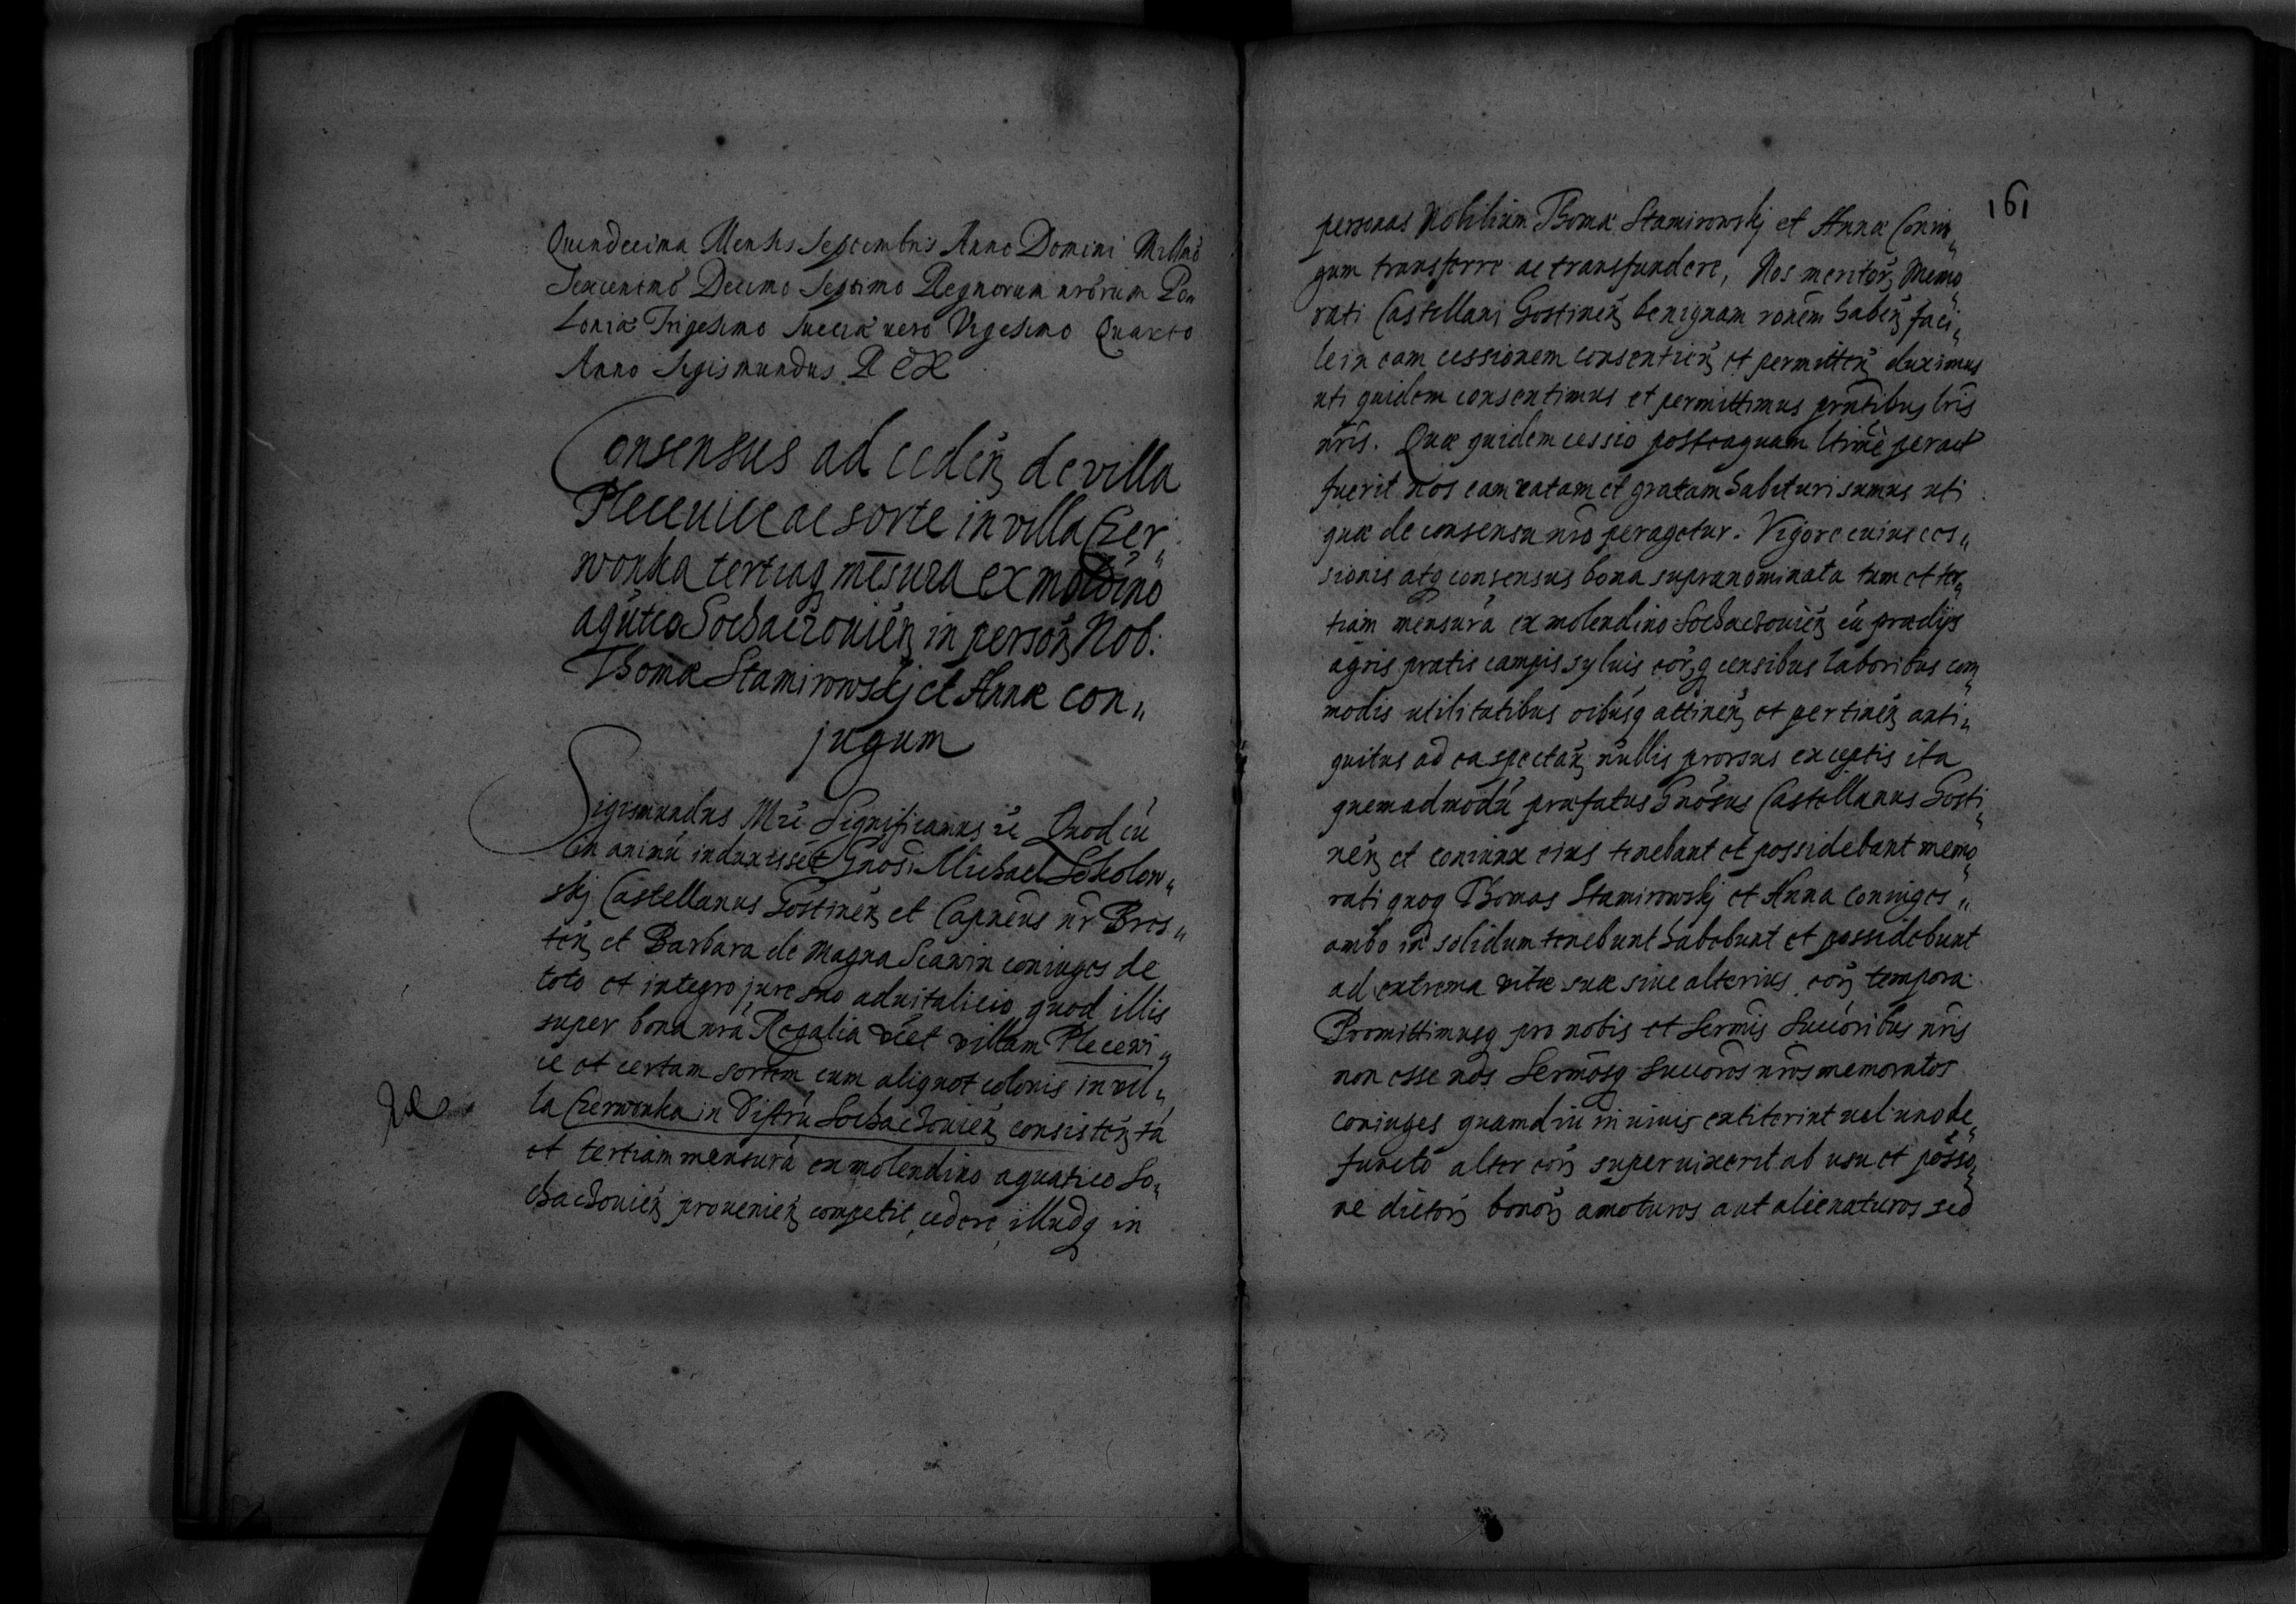 Quindecima Mensis Septembris Anno Domini Millmo
Sexcentmo Decimo Septimo Regnorum nrorum Po„
Loniæ Trigesimo Sueciæ uero Vigesimo Quarto
Anno Sigismundus REX
Consensus ad ceden de villa
Plecewice ac sorte in villa Czer„
wonka tertiaq mesura ex moldino
aqutco Sochaczouien in person Nob:
Thomæ Stamirowskj et Annæ con„
jugum
Sigismundus Mri Significamus re Quod cu
in animu induxisset Gnosi Michael Sokolow„
skj Castellanus Gostinen et Capneus nr Bres„
ten et Barbara de Magna Scanin coniuges de
toto et integro jure suo aduitalicio quod illis
super bona nra Regalia vict villam Plecewi„
ce et certam sortem cum aliquot colonis in vil„
la Czerwonka in Distru Sochaczouien consisten ta
et tertiam mensurā ex molendino aquatico So„
chaczouien prouenien competit, cedere, illudq in
161
personas Nobilium Thomæ Stamirowskj et Annæ Coniu„
gum transferre ac transfundere, Nos meritor Memo„
rati Castellani Gostinen benignam ronem haben faci„
le in eam cessionem consentien et permitten duximus
uti quidem consentimus et permittimus prntibus lris
nris. Quæ quidem cessio posteaquam ltime peract
fuerit nos eam ratam et gratam habituri sumus uti
quæ de consensu nro peragetur. Vigore cuius ces„
sionis atq consensus bona supranominata tum et ter„
tiam mensurā ex molendino Sochaczouien cu prædijs
agris pratis campis syluis corq censibus laboribus com„
modis utilitatibus oibusq attinen et pertinen anti„
quitus ad ea spectan nullis prorsus exceptis ita
quemadmodu præfatus Gnosus Castellanus Gosti„
nen et coniunx eius tenebant et possidebant memo„
rati quoq Thomas Stamirowskj et Anna coniuges„
ambo in solidum tenebunt habebunt et possidebunt
ad extrema vitæ suæ siue alterius eor tempora.
Promittimusq pro nobis et Sermis Succoribus nris
non esse nos Sermosq Succores nros memoratos
coniuges quamdiu in uiuis extiterint uel uno de„
functo alter eor superuixerit ab usu et posso„
ne dictor bonor amoturos aut alienaturos sed